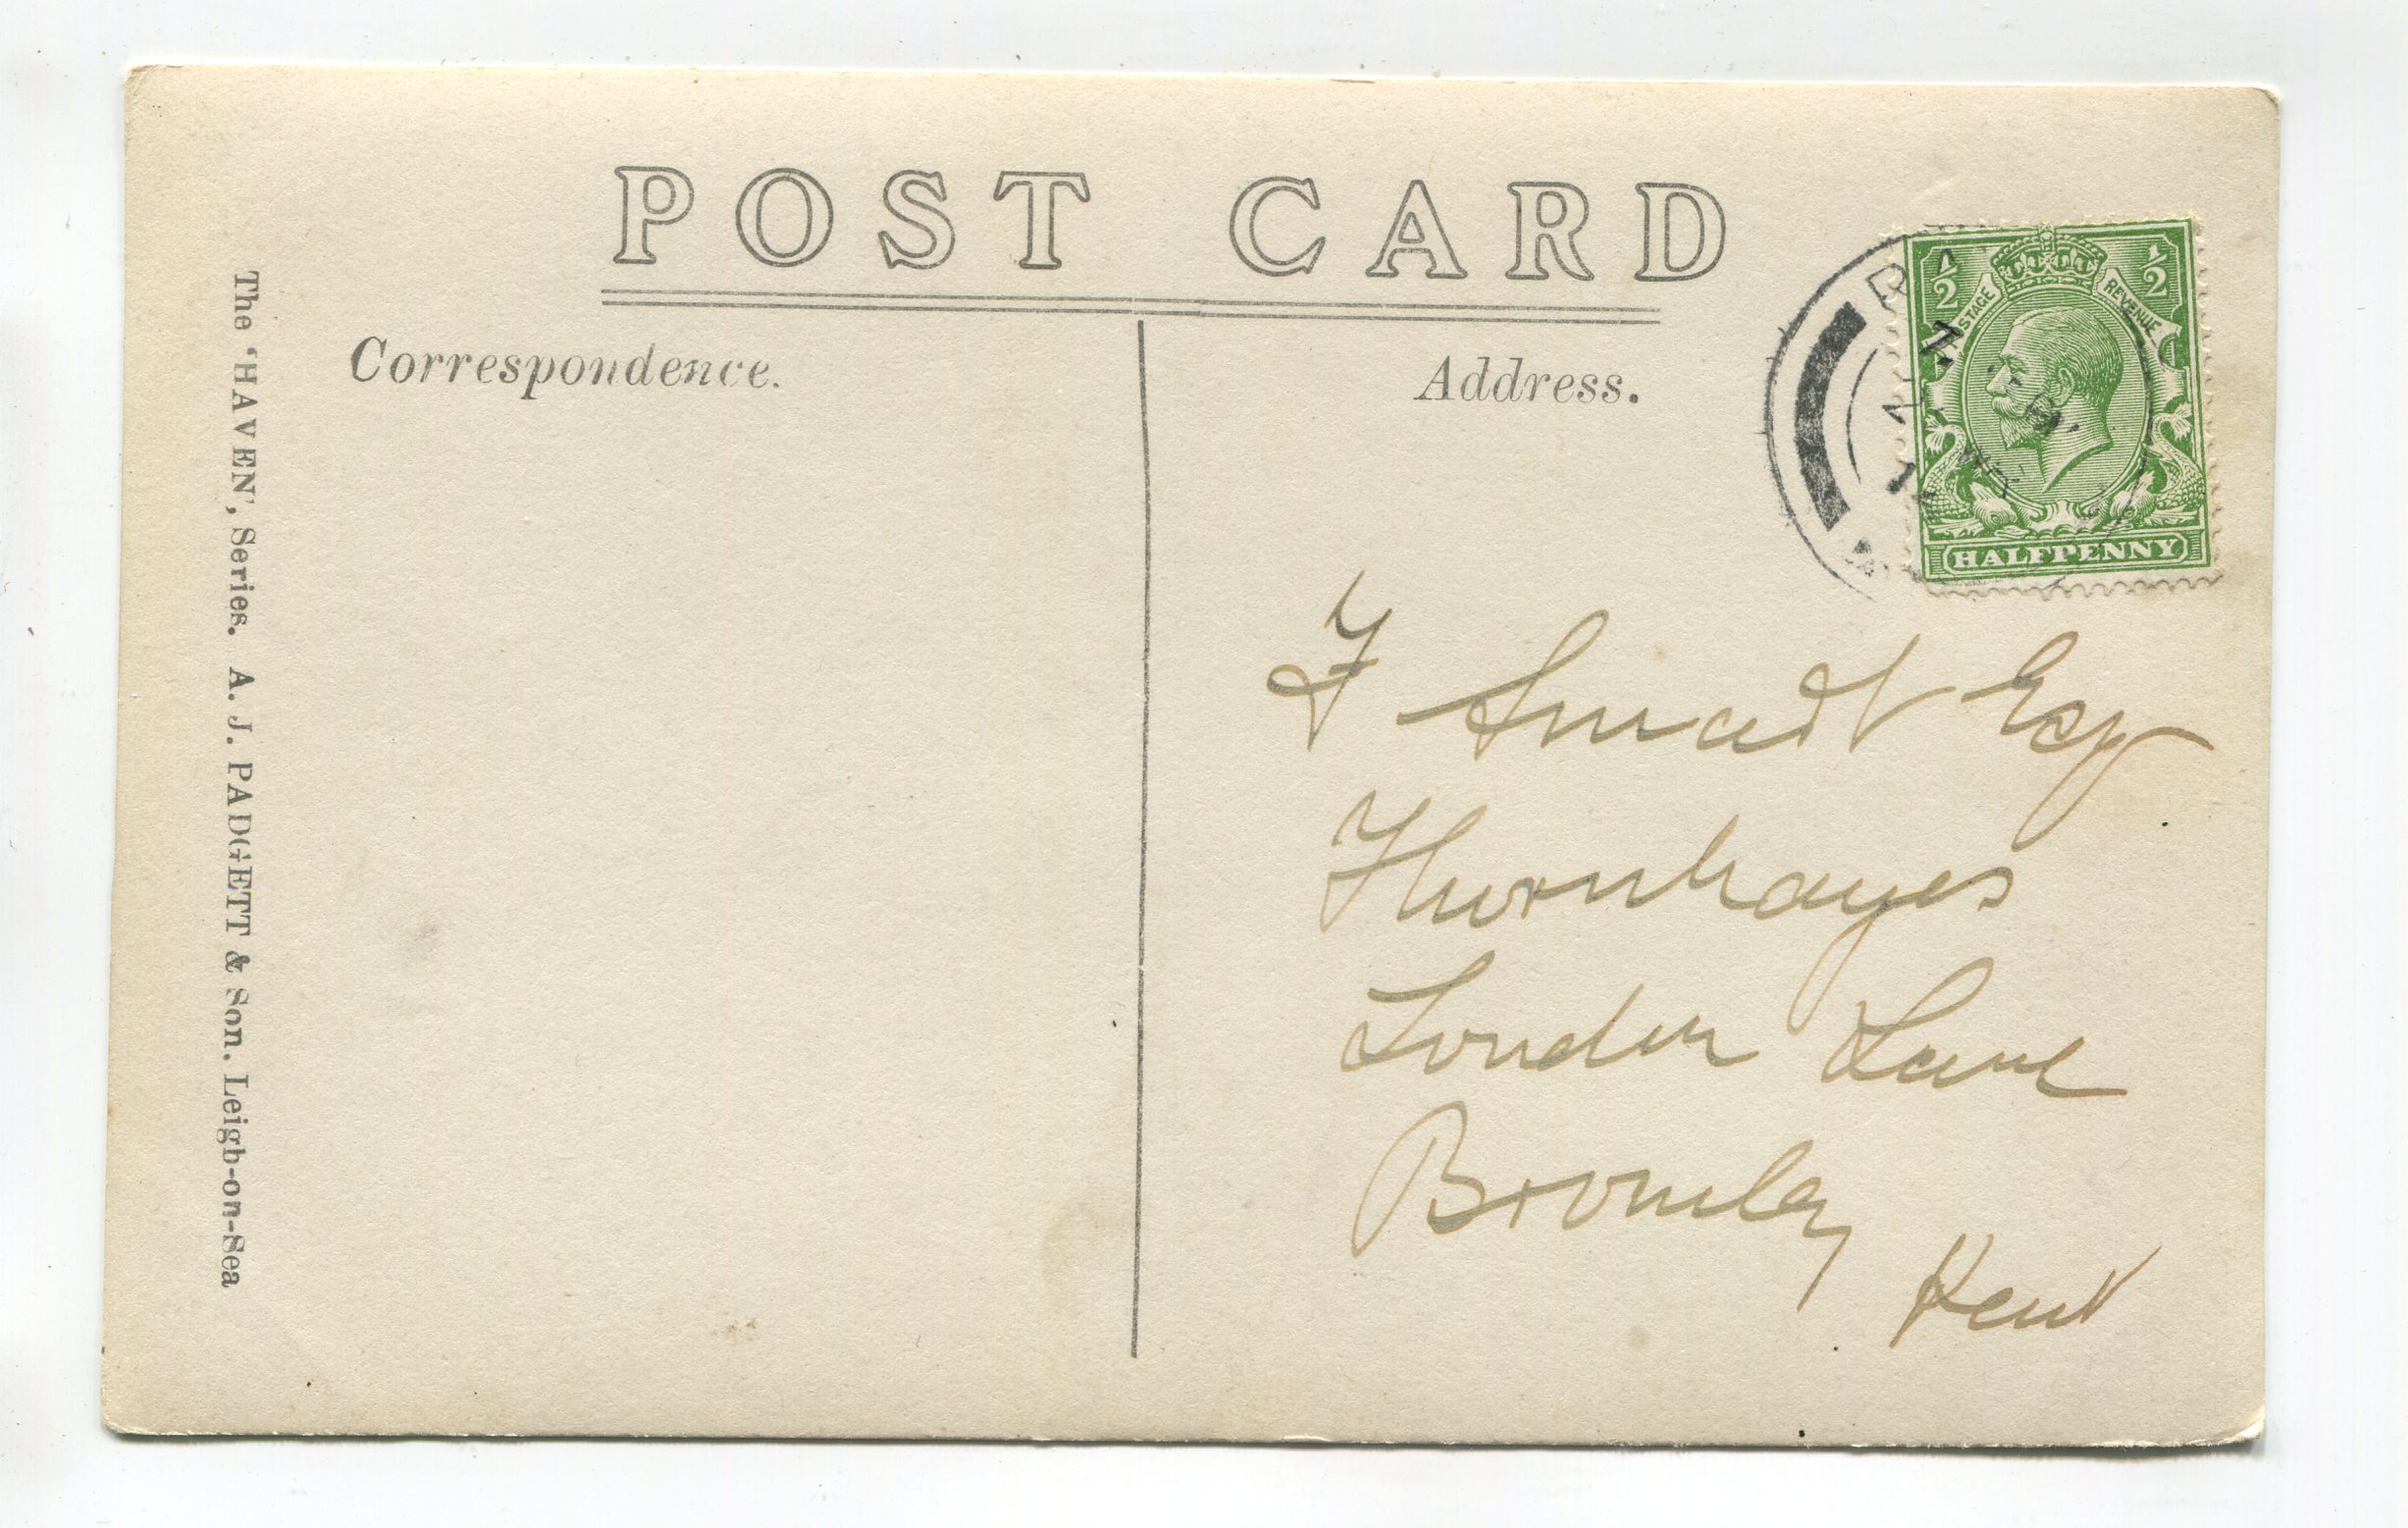 POST CARD
Correspondence.
Address.
The 'HAVEN', Series. A. J. PADGETT & Son. Leigh-on-Sea
½ ½
POSTAGE REVENUE
HALFPENNY
F Smart Esq
Thornhayes
London Lane
Bromley
Kent